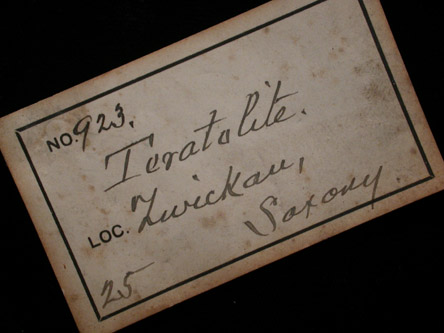 NO. 923.
Teratolite.
LOC. Zwickau,
Saxony.
25